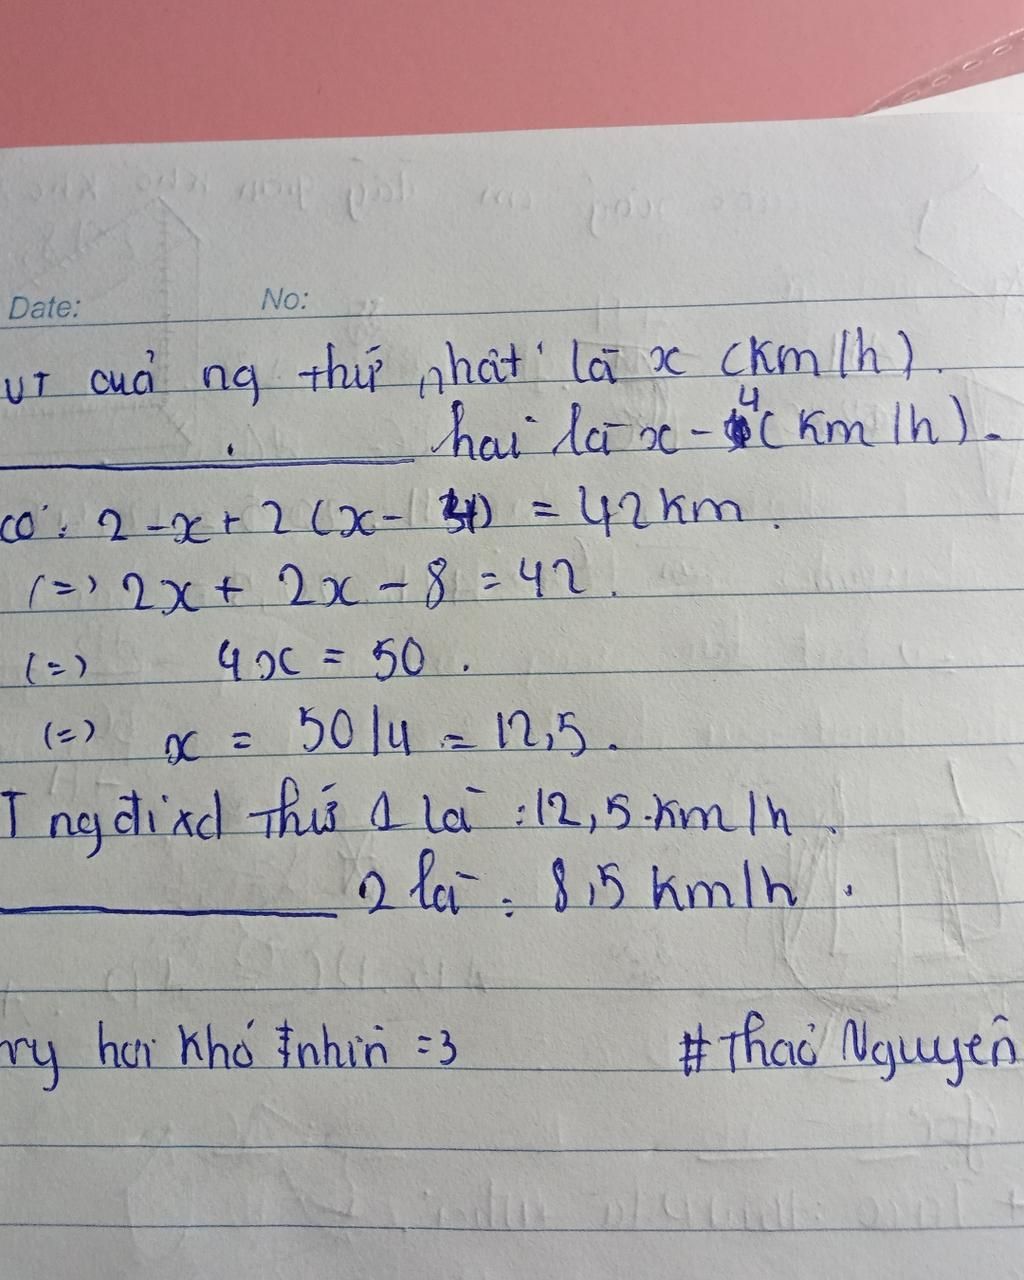 Date: No:
VT cuả ng thứ nhất là x (Km/h).
hai là x - 4 (Km/h).
có: 2 - x + 2 (x - 4) = 42 km.
(=) 2x + 2x - 8 = 42.
(=) 4x = 50.
(=) x = 50/4 = 12,5.
T ng đi xđ thứ 1 là : 12,5 km/h.
2 là : 8,5 km/h.
ry hơi khó nhìn =3 #Thảo Nguyên